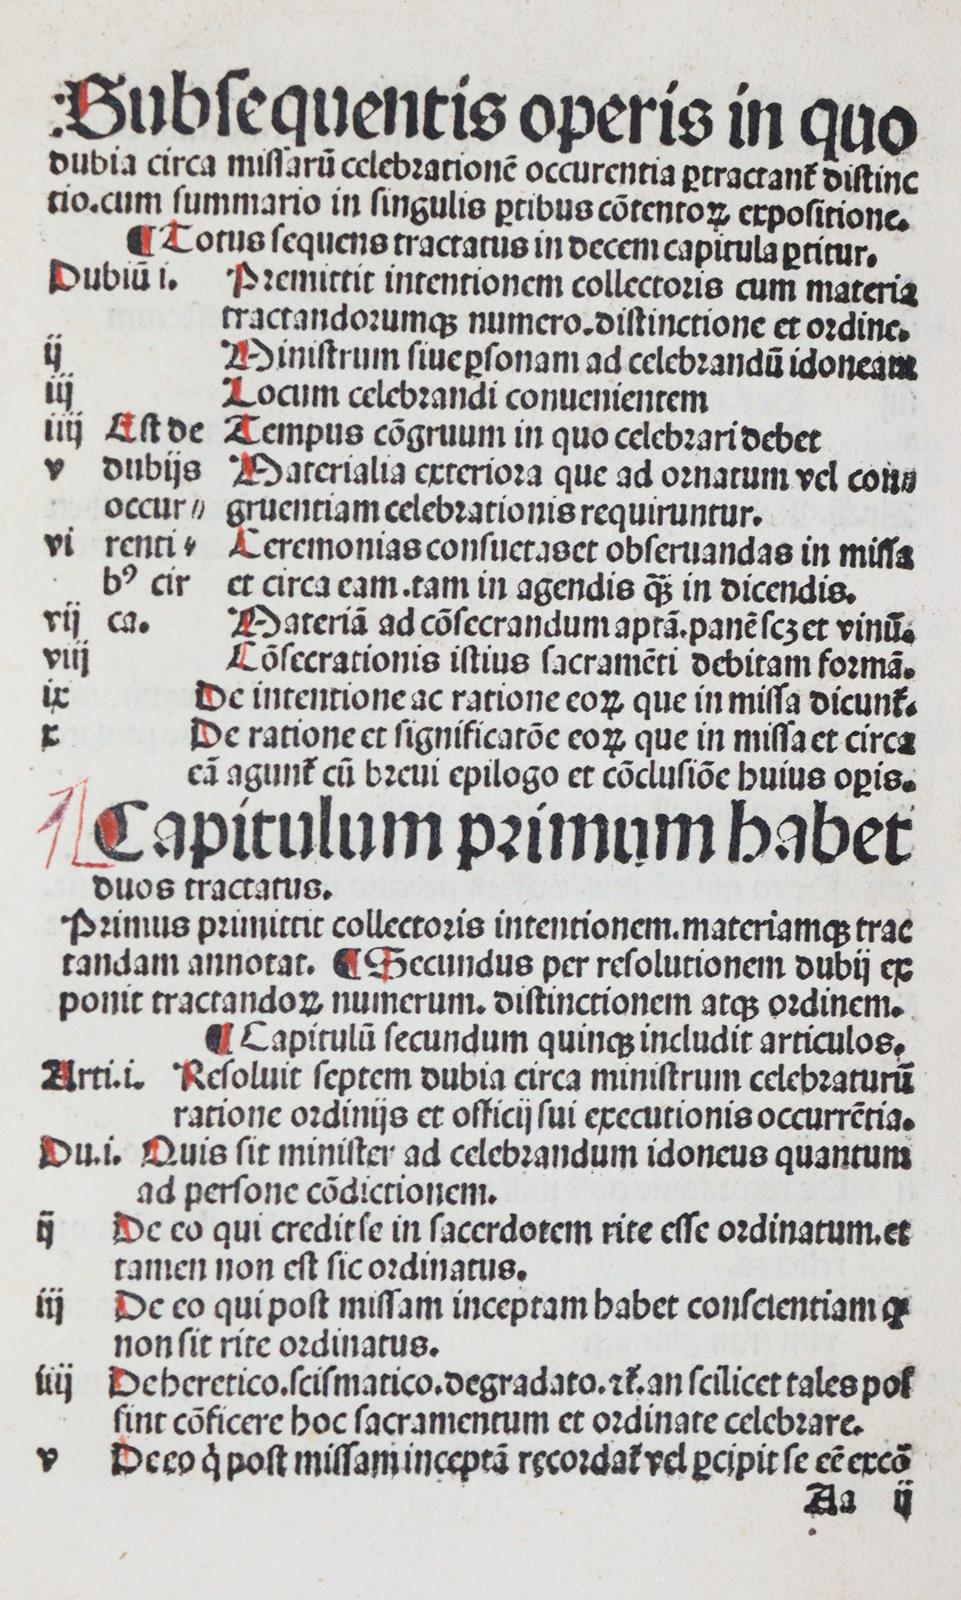 Subsequentis operis in quo
dubia circa missarū celebrationē occurentia ꝑtractant᷑ distinc
tio.cum summario in singulis ꝑtibus cōtentoꝝ expositione.
¶ Totus sequens tractatus in decem capitula ꝑtitur.
Dubiū i. Premittit intentionem collectoris cum materia
tractandorumqꝫ numero.distinctione et ordine.
ij Ministrum siue ꝑsonam ad celebrandū idoneam
iij Locum celebrandi conuenientem
iiij Est de Tempus cōgruum in quo celebrari debet
v dubijs Materialia exteriora que ad ornatum vel con⸗
occur⸗ gruentiam celebrationis requiruntur.
vi renti⸗ Ceremonias consuetas et obseruandas in missa
bꝰ cir et circa eam.tam in agendis qꝫ̄ in dicendis.
vij ca. Materiā ad cōsecrandum aptā.panē scꝫ et vinū.
viij Cōsecrationis istius sacramēti debitam formā.
ix De intentione ac ratione eoꝝ que in missa dicunt᷑.
x De ratione et significatōe eoꝝ que in missa et circa
eā agunt᷑ cū breui epilogo et cōclusiōe huius oꝑis.
Capitulum primum habet
duos tractatus.
Primus primittit collectoris intentionem.materiamqꝫ trac
tandam annotat. ¶ Secundus per resolutionem dubij ex
ponit tractandoꝝ numerum. distinctionem atqꝫ ordinem.
¶ Capitulū secundum quinqꝫ includit articulos.
Arti.i. Resoluit septem dubia circa ministrum celebraturū
ratione ordinijs et officij sui executionis occurrētia.
Du.i. Quis sit minister ad celebrandum idoneus quantum
ad persone cōdictionem.
ij De eo qui credit se in sacerdotem rite esse ordinatum.et
tamen non est sic ordinatus.
iij De eo qui post missam inceptam habet conscientiam ꝙ
non sit rite ordinatus.
iiij De heretico.scismatico.degradato.⁊t᷑.an scilicet tales pos
sint cōficere hoc sacramentum et ordinate celebrare.
v De eo q̇ post missam inceptā recordat᷑ vel ꝑcipit se eē excō
Aa ij